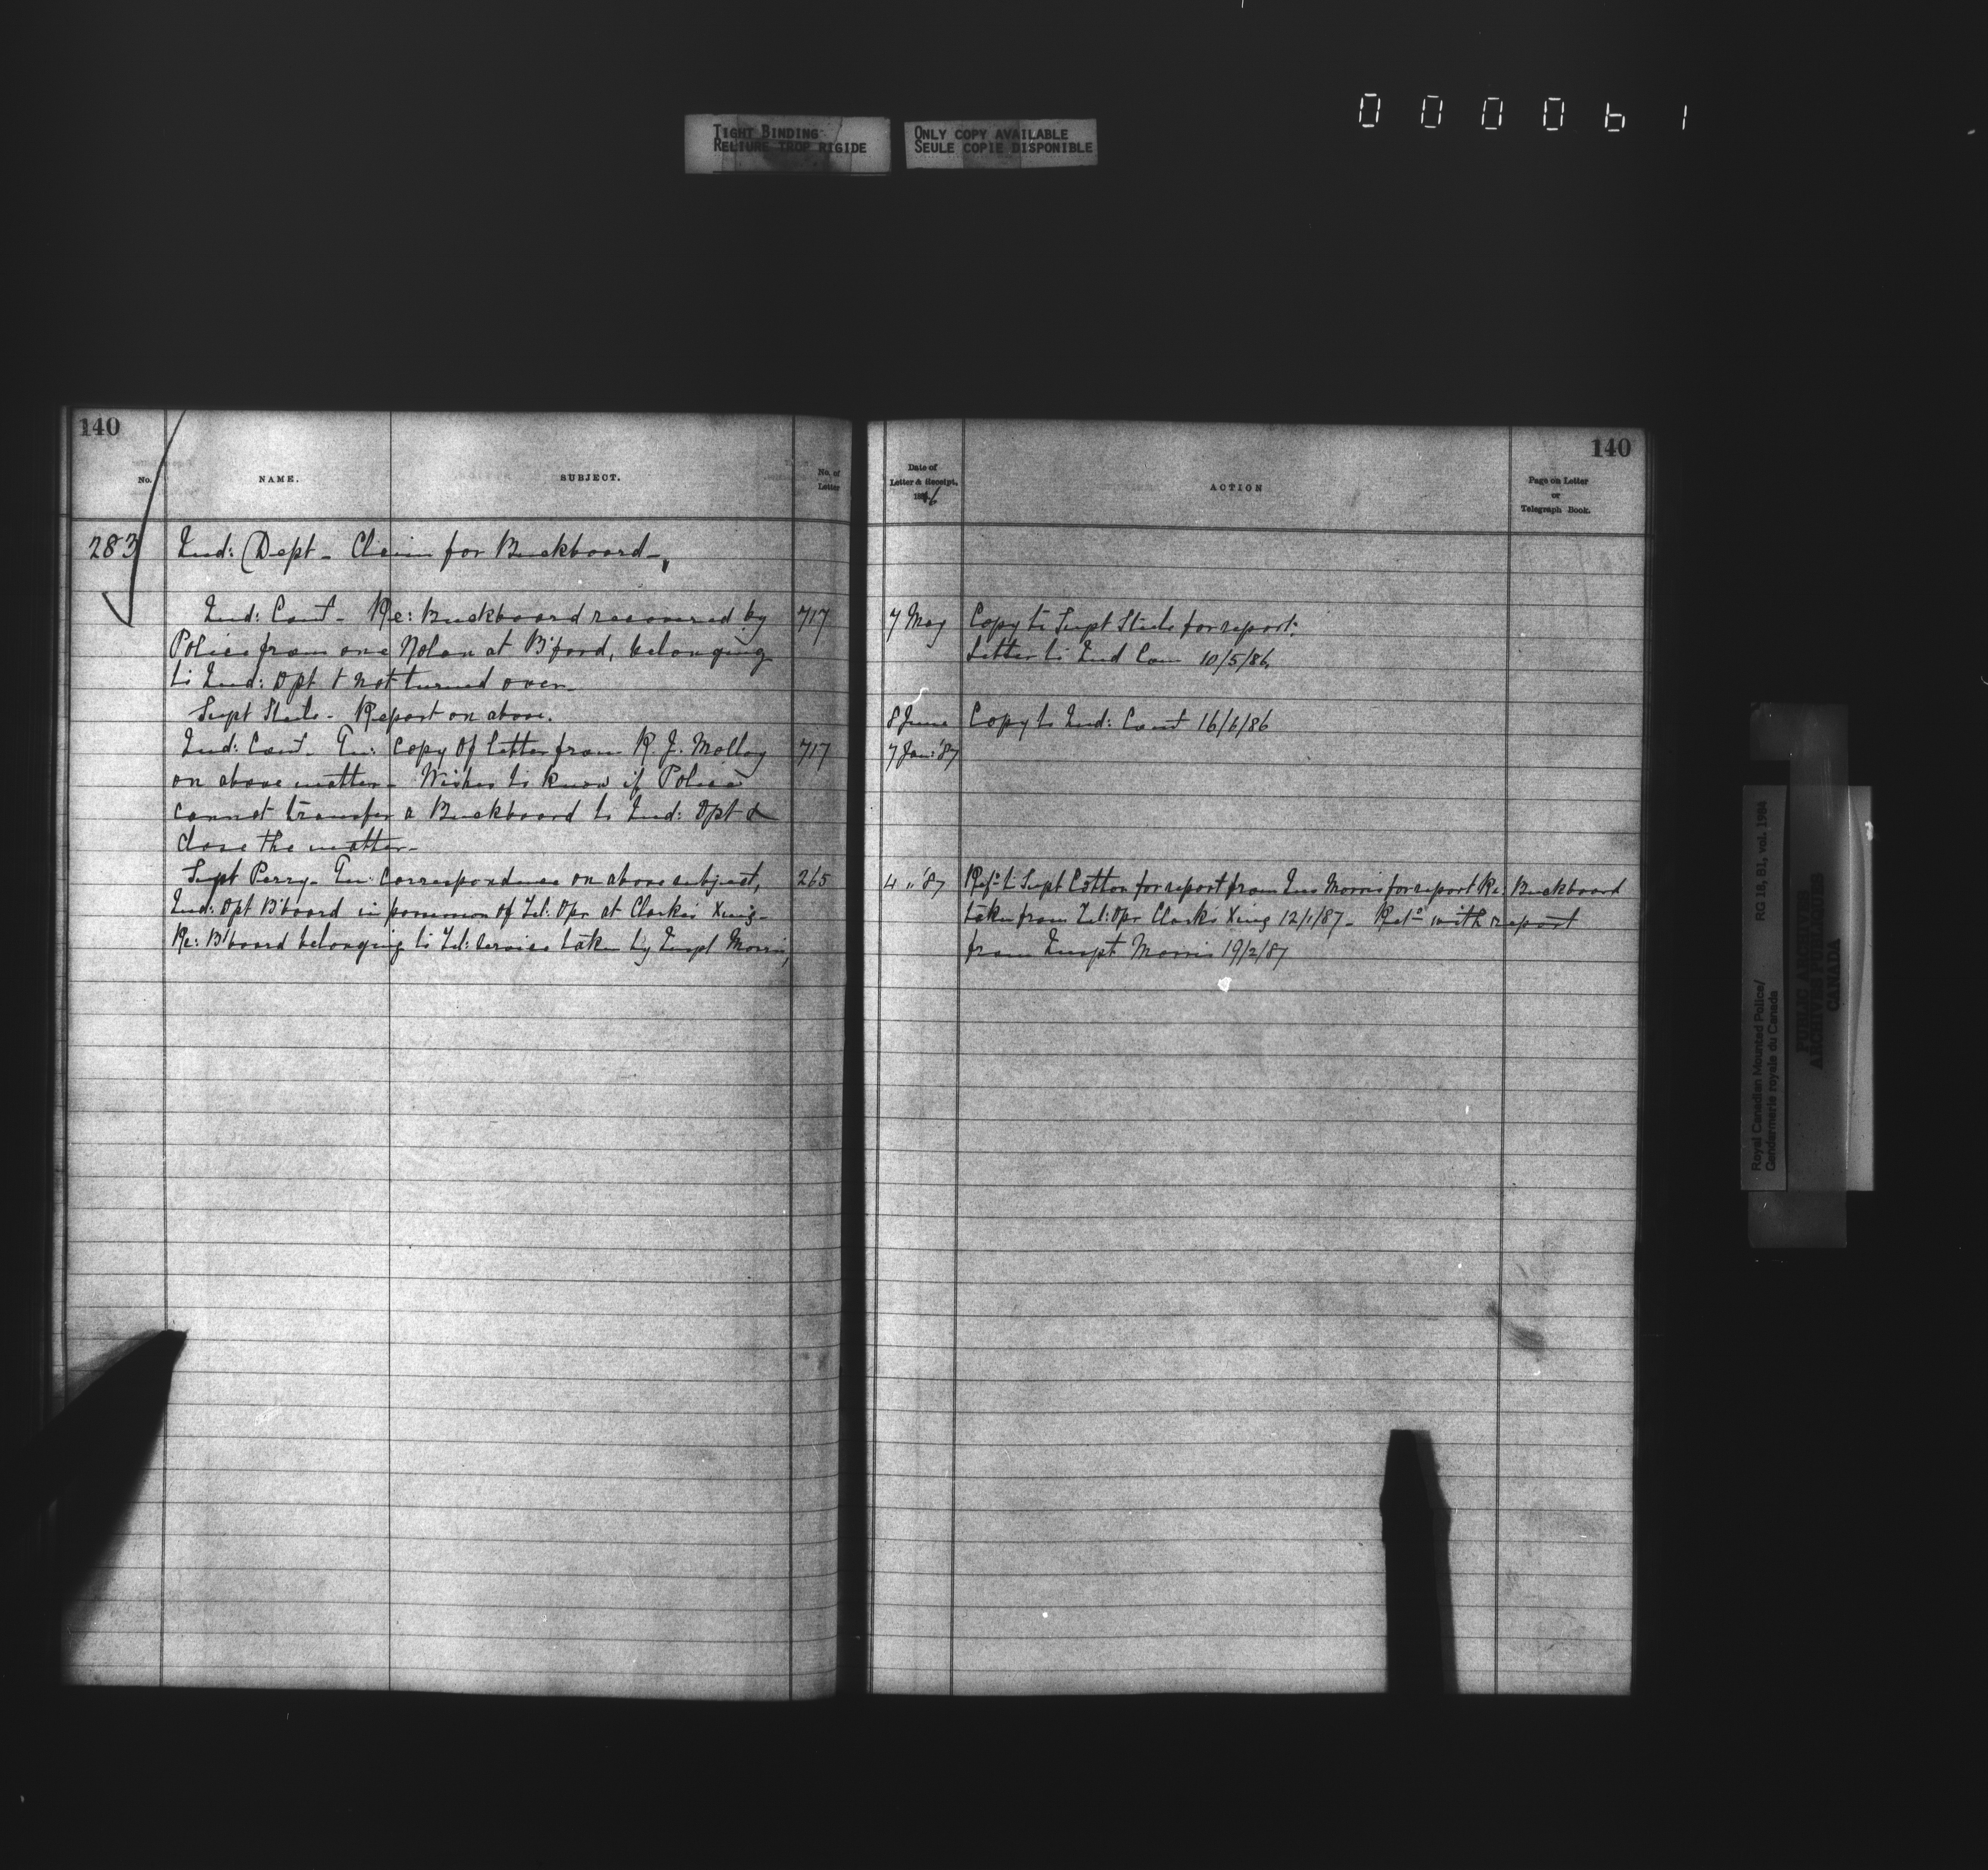 000061
TIGHT BINDING
RELIURE TROP RIGIDE
ONLY COPY AVAILABLE
SEULE COPIE DISPONIBLE
140
No.
NAME.
SUBJECT.
No. of
Letter
283
Ind: Dept - Claim for Buckboard -
Ind: Com - Re: Buckboard recovered by 717
Police from one Nolan at B'ford, belonging
to Ind: Dpt & not turned over -
Supt Steele - Report on above.
Ind: Com - En: Copy of letter from R J. Molloy 717
on above matter - Wishes to know if Police
cannot transfer a Buckboard to Ind: Dpt &
close the matter -
Supt Perry - En: Correspondence on above subject, 265
Ind: Dpt B'board in possession of Tel: Opr at Clarkes Xing -
Re: B'board belonging to Tel: Service taken by Inspt Morris,
140
Date of
Letter & Receipt.
1886
ACTION
Page on Letter
or
Telegraph Book.
7 May Copy to Supt Steele for report.
Letter to Ind Com 10/5/86.
8 June Copy to Ind: Com 16/6/86
7 Jan: '87
4 " 87 Refd to Supt Cotton for report from Ins Morris for report Re: Buckboard
taken from Tel: Opr Clarks Xing 12/1/87 - Retd with report
from Inspt Morris 19/2/87
Royal Canadian Mounted Police/
Gendarmerie royale du Canada
RG 18, B1, vol. 1984
PUBLIC ARCHIVES
ARCHIVES PUBLIQUES
CANADA